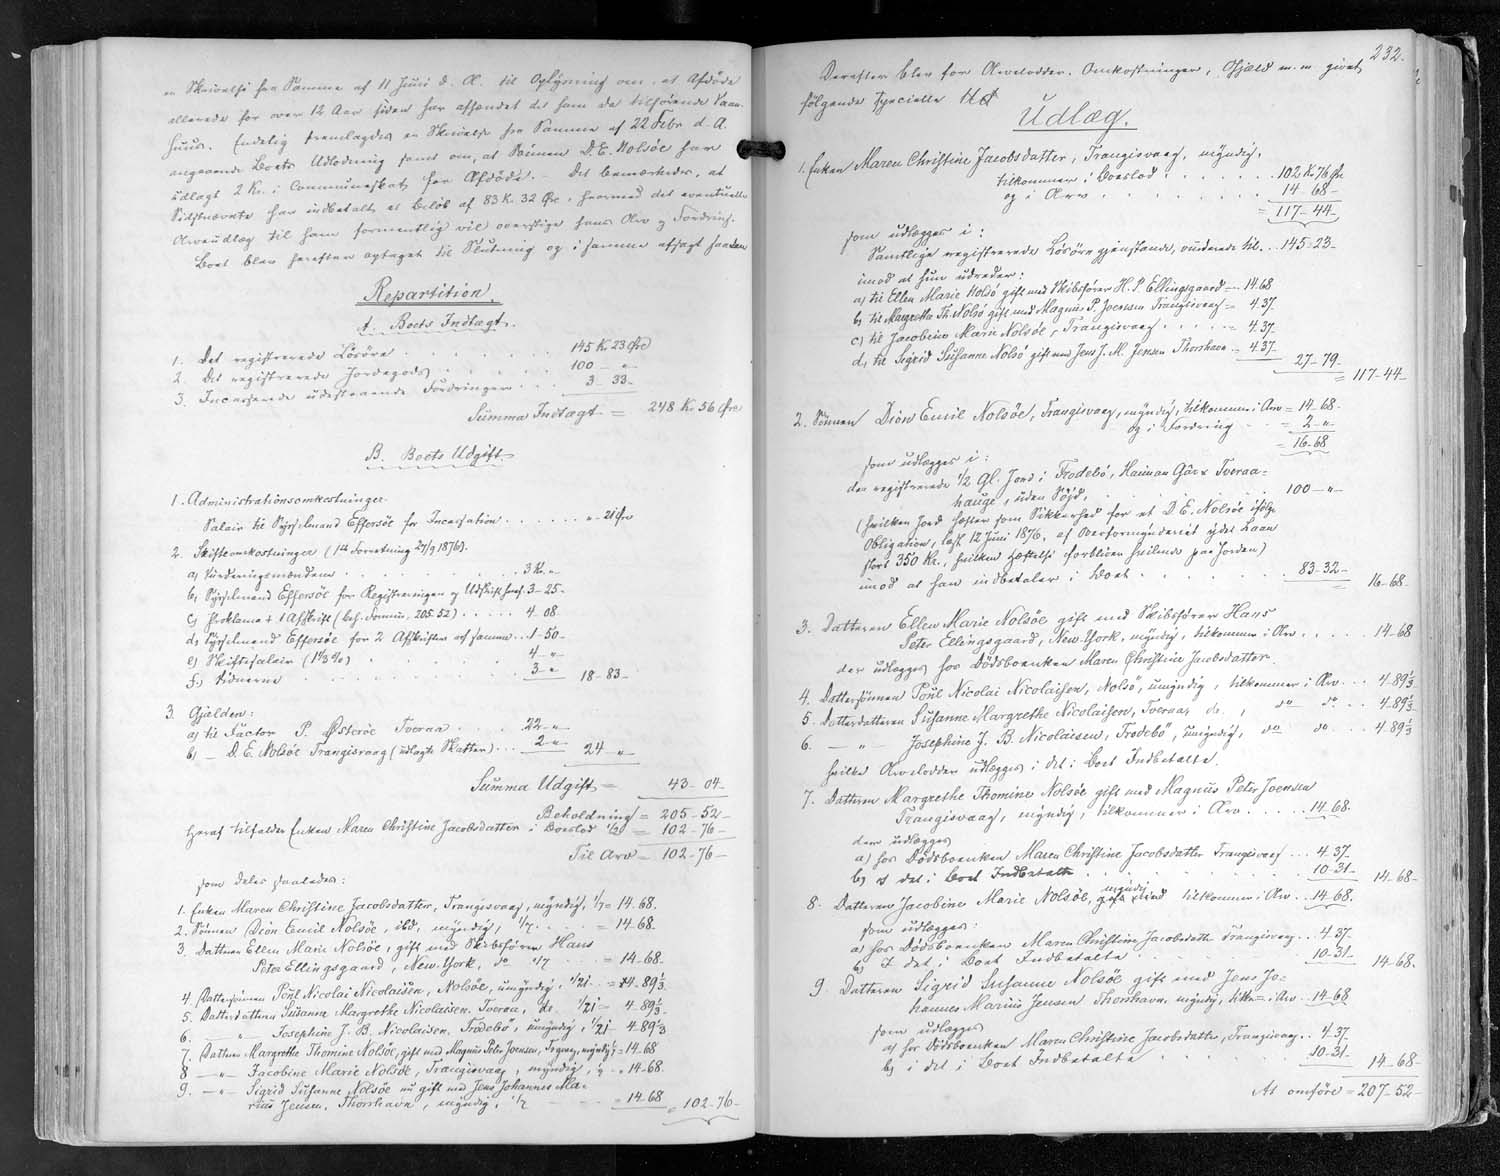 en Skrivelse fra Samme af 11 Juni d. A. til Oplysning om, at Afdøde
allerede for over 12 Aar siden har afhændet de ham da tilhørende
Huus. Endelig fremlagdes en Skrivelse fra Samme af 22 Febr d. A.
angaaende Boets Udlodning samt om, at Sønnen D. E. Nolsøe har
udlagt 2 Kr. i Communeskat for Afdøde. - Det bemærkedes, at
Sidstnævnte har indbetalt et Beløb af 83 Kr. 32 Øre, hvormed det eventuelle
Arveudlæg til ham formentlig vil overstige hans Arv og Fordring.
Boet blev herefter optaget til Slutning og i samme afsagt saadan
Repartition.
A. Boets Indtægt.
1. Det registrerede Løsøre . . . . . . 145 Kr. 23 Øre
2. Det registrerede Jordegods . . . . . 100 — „
3. Incasserede udestaaende Fordringer . . . 3 — 33 —
Summa Indtægt = 248 Kr. 56 Øre
B. Boets Udgift
1. Administrationsomkostninger
Salair til Sysselmand Effersøe for Incassation . . . . . . „ — 21 Øre
2. Skifteomkostninger (1ste Forretning 27/9 1876).
a) Vurderingsmændene . . . . . . 3 Kr. „
b) Sysselmand Effersøe for Registreringen og Udskrift heraf 3 — 25 —
c) Proklama + 1 Afskrift (beh. Formue, 205.52) . . . . . 4 — 08
d) Sysselmand Effersøe for 2 Afskrifter af samme . . 1 — 50 —
e) Skiftesalair (1 1/3 %) . . . . . . 4 — „
f) Vidnerne . . . . . . 3 — „ 18 — 83 —
3. Gjælden:
a) til Factor P. Østerøe Tveraa . . . . 22 — „
b) — D. E. Nolsøe Trangisvaag (udlagte Skatter) . . . 2 — „ 24 — „
Summa Udgift = 43 — 04 —
Beholdning = 205 — 52 —
Heraf tilfalder Enken Maren Christine Jacobsdatter i Boeslod 1/2 = 102 — 76 —
Til Arv = 102 — 76 —
som deles saaledes:
1. Enken Maren Christine Jacobsdatter, Trangisvaag, myndig, 1/7 = 14 — 68.
2. Sønnen Dion Emil Nolsøe, ibd, myndig, 1/7 . . . . = 14 — 68.
3. Datteren Ellen Marie Nolsøe, gift med Skibsfører Hans
Peter Ellingsgaard, New-York, do 1/7 . . . = 14 — 68.
4. Dattersønnen Poul Nicolai Nicolaisen, Nolsøe, umyndig, 1/21 . . = 4 — 89 1/3
5. Datterdatteren Susanne Margrethe Nicolaisen, Tveraa, do. 1/21 = 4 — 89 1/3
6. — „ — Josephine J. B. Nicolaisen, Frodebø, umyndig, 1/21 = 4 — 89 1/3
7. Datteren Margrethe Thomine Nolsøe, gift med Magnus Peter Joensen, Trgvaag, myndig 1/7 = 14 — 68
8. — „ — Jacobine Marie Nolsøe, Trangisvaag, myndig, 1/7 . = 14 — 68.
9. — „ — Sigrid Susanne Nolsøe nu gift med Jens Johannes Ma-
rius Jensen, Thorshavn, myndig, 1/7 — — — = 14 — 68 = 102 — 76 —
232.
Derefter blev for Arvelodder, Omkostninger, Gjæld m. m. givet
følgende specielle
Udlæg.
1. Enken Maren Christine Jacobsdatter, Trangisvaag, myndig,
tilkommer i Boeslod . . . . . . 102 Kr. 76 Øre
og i Arv . . . . . . 14 — 68 —
= 117 — 44 —
som udlægges i:
Samtlige registrerede Løsøregjenstande, vurderede til . . 145 — 23 —
imod at hun udreder:
a) til Ellen Marie Nolsø gift med Skibsfører H. P. Ellingsgaard = 14.68
b) til Margretha Th. Nolsø gift med Magnus P. Joensen Trangisvaag = 4.37.
c) til Jacobine Marie Nolsøe, Trangisvaag . . . . . = 4.37.
d) til Sigrid Susanne Nolsø gift med Jens J. M. Jensen Thorshavn = 4.37. 27 — 79.
= 117 — 44 —
2. Sønnen Dion Emil Nolsøe, Trangisvaag, myndig, tilkommer i Arv = 14 — 68.
og i Fordring . . . = 2 — „
= 16 — 68
som udlægges i:
den registrerede 1/2 Gl. Jord i Frodebø, Haiman Gàrx Tveraa-
hauge, uden Røjd, . . . . . . 100 — „ —
(hvilken Jord hæfter som Sikkerhed for et D. E. Nolsøe ifølge
Obligation, læst 12 Juni 1876, af Overformynderiet ydet Laan
stort 350 Kr., hvilken Hæftelse forbliver hvilende paa Jorden)
imod at han indbetaler i Boet . . . . . 83 — 32 — = 16 — 68
3. Datteren Ellen Marie Nolsøe gift med Skibsfører Hans
Peter Ellingsgaard, New-York, myndig, tilkommer i Arv . . . . . 14 — 68
der udlægges hos Dødsboenken Maren Christine Jacobsdatter.
4. Dattersønnen Poul Nicolai Nicolaisen, Nolsø, umyndig, tilkommer i Arv . . . 4 — 89 1/3
5. Datterdatteren Susanne Margrethe Nicolaisen, Tveraa, do. , do do . . . 4 — 89 1/3
6. — „ — Josephine J. B. Nicolaisen, Frodebø, umyndig, do do . . . 4 — 89 1/3
hvilke Arvelodder udlægges i det i Boet Indbetalte.
7. Datteren Margrethe Thomine Nolsøe gift med Magnus Peter Joensen
Trangisvaag, myndig, tilkommer i Arv . . . . 14 — 68.
der udlægges
a) hos Dødsboenken Maren Christine Jacobsdatter Trangisvaag . . . 4 — 37 —
b) i det i Boet Indbetalte . . . . . . 10 — 31 — 14 — 68 —
8. Datteren Jacobine Marie Nolsøe, myndig tilkommer i Arv . . 14 — 68.
som udlægges:
a) hos Dødsboenken Maren Christine Jacobsdatter Trangisvaag . . 4 — 37.
b) i det i Boet Indbetalte . . . . . . 10 — 31 — 14 — 68.
9. Datteren Sigrid Susanne Nolsøe gift med Jens Jo-
hannes Marius Jensen Thorshavn, myndig, tilk = i Arv . . 14 — 68
som udlægges
a) hos Dødsboenken Maren Christine Jacobsdatter, Trangisvaag . . 4 — 37.
b) i det i Boet Indbetalte . . . . . . 10 — 31 — 14 — 68 —
At omføre = 207 — 52 —